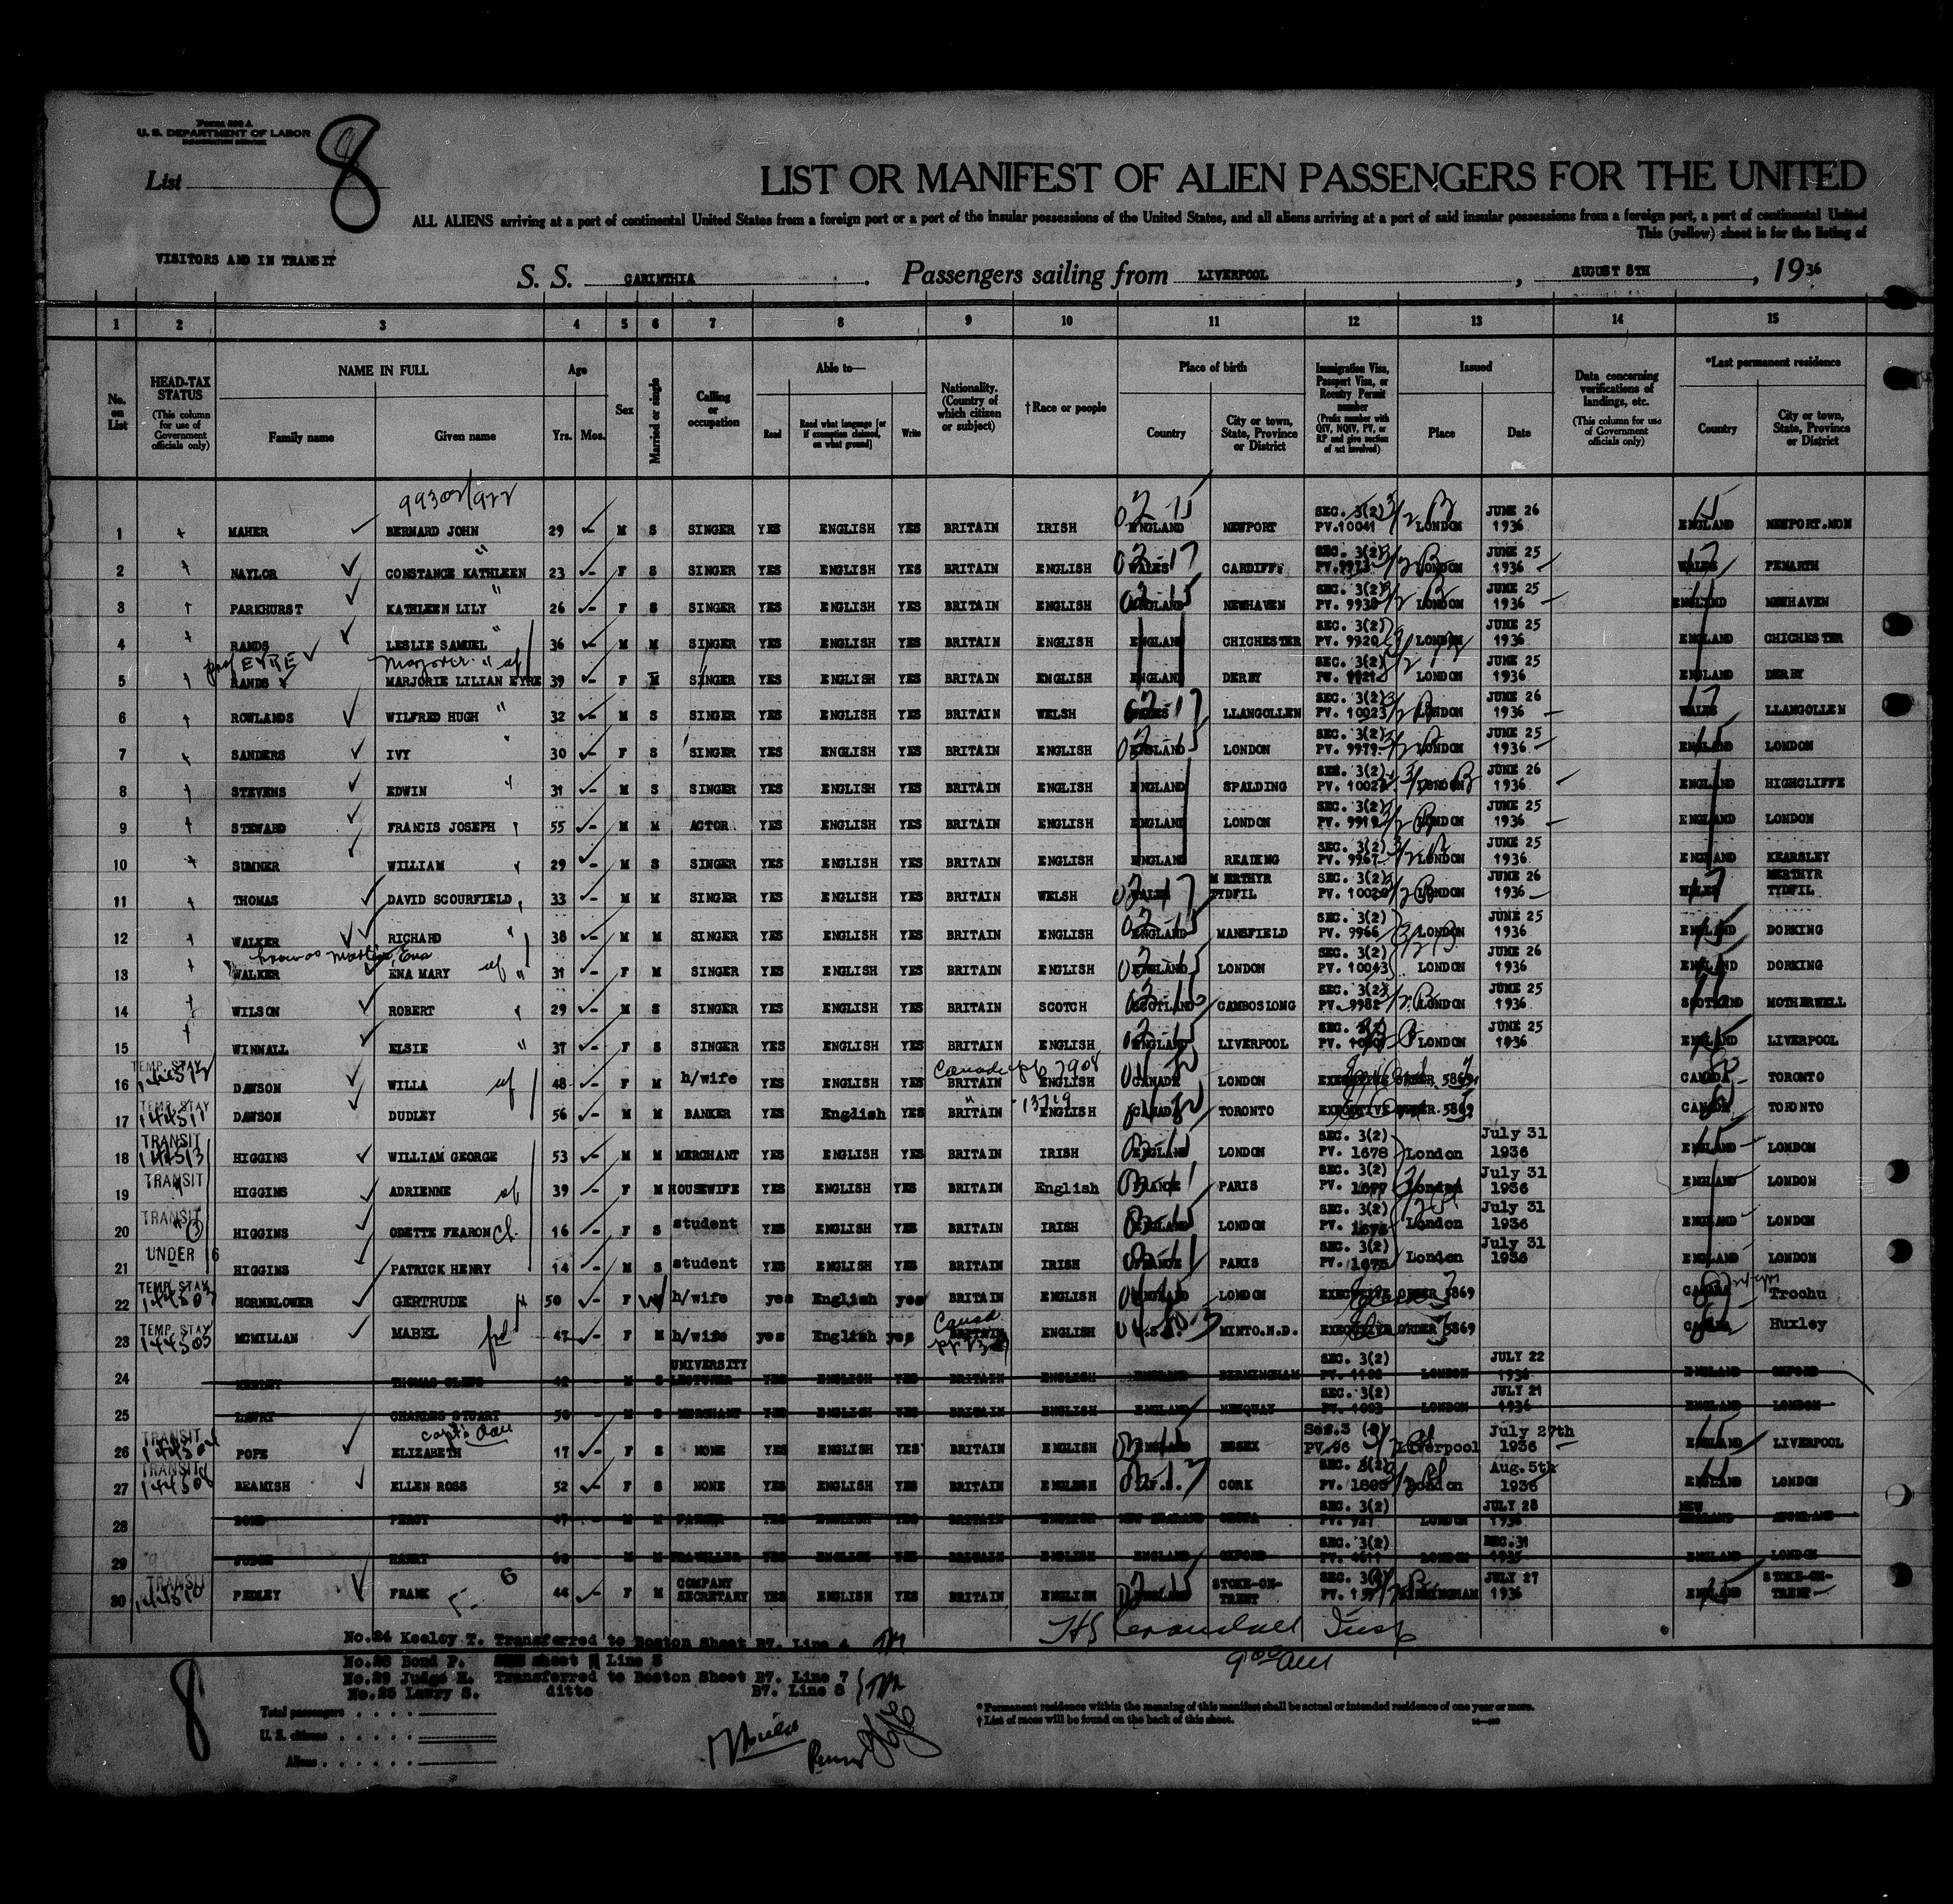 Form 500 A
U. S. DEPARTMENT OF LABOR
IMMIGRATION SERVICE
8
List
LIST OR MANIFEST OF ALIEN PASSENGERS FOR THE UNITED
ALL ALIENS arriving at a port of continental United States from a foreign port or a port of the insular possessions of the United States, and all aliens arriving at a port of said insular possessions from a foreign port, a port of continental United
This (yellow) sheet is for the listing of
VISITORS AND IN TRANSIT
S. S. CARINTHIA. Passengers sailing from LIVERPOOL, AUGUST 8TH, 1936
1 2 3 4 5 6 7 8 9 10 11 12 13 14 15
No. on List
HEAD-TAX STATUS (This column for use of Government officials only)
NAME IN FULL Family name Given name
Age Yrs. Mos.
Sex
Married or single
Calling or occupation
Able to— Read Read what language [or if exemption claimed, on what ground] Write
Nationality. (Country of which citizen or subject)
†Race or people
Place of birth Country City or town, State, Province or District
Immigration Visa, Passport Visa, or Reentry Permit number (Prefix number with QIV, NQIV, PV, or RP and give section of act involved)
Issued Place Date
Data concerning verifications of landings, etc. (This column for use of Government officials only)
*Last permanent residence Country City or town, State, Province or District
1 MAHER BERNARD JOHN 29 M S SINGER YES ENGLISH YES BRITAIN IRISH ENGLAND NEWPORT SEC. 3(2) PV.10041 LONDON JUNE 26 1936 ENGLAND NEWPORT.MON
2 NAYLOR CONSTANCE KATHLEEN 23 F S SINGER YES ENGLISH YES BRITAIN ENGLISH WALES CARDIFF. SEC. 3(2) LONDON JUNE 25 1936 WALES PENARTH
3 PARKHURST KATHLEEN LILY 26 F S SINGER YES ENGLISH YES BRITAIN ENGLISH ENGLAND NEWHAVEN SEC. 3(2) PV. 9938 LONDON JUNE 25 1936 ENGLAND NEWHAVEN
4 RANDS LESLIE SAMUEL 36 M M SINGER YES ENGLISH YES BRITAIN ENGLISH ENGLAND CHICHESTER SEC. 3(2) PV. 9920 LONDON JUNE 25 1936 ENGLAND CHICHESTER
EYRE Marjorie
5 RANDS MARJORIE LILIAN EYRE 39 F M SINGER YES ENGLISH YES BRITAIN ENGLISH ENGLAND DERBY SEC. 3(2) PV. 9921 LONDON JUNE 25 1936 ENGLAND DERBY
6 ROWLANDS WILFRED HUGH 32 M S SINGER YES ENGLISH YES BRITAIN WELSH WALES LLANGOLLEN SEC. 3(2) PV. 10023 LONDON JUNE 26 1936 WALES LLANGOLLEN
7 SANDERS IVY 30 F S SINGER YES ENGLISH YES BRITAIN ENGLISH ENGLAND LONDON SEC. 3(2) PV. 9979 LONDON JUNE 25 1936 ENGLAND LONDON
8 STEVENS EDWIN 31 M S SINGER YES ENGLISH YES BRITAIN ENGLISH ENGLAND SPALDING SEC. 3(2) PV. 1002 LONDON JUNE 26 1936 ENGLAND HIGHCLIFFE
9 STEWARD FRANCIS JOSEPH 55 M M ACTOR YES ENGLISH YES BRITAIN ENGLISH ENGLAND LONDON SEC. 3(2) PV. 9919 LONDON JUNE 25 1936 ENGLAND LONDON
10 SUMNER WILLIAM 29 M S SINGER YES ENGLISH YES BRITAIN ENGLISH ENGLAND READING SEC. 3(2) PV. 9967 LONDON JUNE 25 1936 ENGLAND KEARSLEY
11 THOMAS DAVID SCOURFIELD 33 M M SINGER YES ENGLISH YES BRITAIN WELSH WALES MERTHYR TYDFIL SEC. 3(2) PV. 10020 LONDON JUNE 26 1936 WALES MERTHYR TYDFIL
12 WALKER RICHARD 38 M M SINGER YES ENGLISH YES BRITAIN ENGLISH ENGLAND MANSFIELD SEC. 3(2) PV. 9966 LONDON JUNE 25 1936 ENGLAND DORKING
13 WALKER ENA MARY 31 F M SINGER YES ENGLISH YES BRITAIN ENGLISH ENGLAND LONDON SEC. 3(2) PV. 10043 LONDON JUNE 26 1936 ENGLAND DORKING
14 WILSON ROBERT 29 M S SINGER YES ENGLISH YES BRITAIN SCOTCH SCOTLAND CAMBOSLONG SEC. 3(2) PV. 9982 LONDON JUNE 25 1936 SCOTLAND MOTHERWELL
15 WINNALL ELSIE 37 F S SINGER YES ENGLISH YES BRITAIN ENGLISH ENGLAND LIVERPOOL SEC. LONDON JUNE 25 1936 ENGLAND LIVERPOOL
16 TEMP. STAY DAWSON WILLA 48 F M h/wife YES ENGLISH YES BRITAIN ENGLISH CANADA LONDON EXECUTIVE ORDER 5869 CANADA TORONTO
17 TEMP. STAY DAWSON DUDLEY 56 M M BANKER YES English YES BRITAIN ENGLISH CANADA TORONTO EXECUTIVE ORDER 5869 CANADA TORONTO
18 TRANSIT HIGGINS WILLIAM GEORGE 53 M M MERCHANT YES ENGLISH YES BRITAIN IRISH ENGLAND LONDON SEC. 3(2) PV. 1678 London July 31 1936 ENGLAND LONDON
19 TRANSIT HIGGINS ADRIENNE 39 F M HOUSEWIFE YES ENGLISH YES BRITAIN English FRANCE PARIS SEC. 3(2) PV. 1677 London July 31 1936 ENGLAND LONDON
20 TRANSIT HIGGINS ODETTE FEARON 16 F S student YES ENGLISH YES BRITAIN IRISH ENGLAND LONDON SEC. 3(2) PV. London July 31 1936 ENGLAND LONDON
21 UNDER 16 HIGGINS PATRICK HENRY 14 M S student YES ENGLISH YES BRITAIN IRISH FRANCE PARIS SEC. 3(2) PV. 1675 London July 31 1936 ENGLAND LONDON
22 TEMP. STAY HORNBLOWER GERTRUDE 50 F W h/wife yes English yes BRITAIN ENGLISH ENGLAND LONDON EXECUTIVE ORDER 5869 CANADA Trochu
23 TEMP. STAY MCMILLAN MABEL 47 F M h/wife yes English yes BRITAIN ENGLISH U.S.A. MINTO.N.D. EXECUTIVE ORDER 5869 CANADA Huxley
24 UNIVERSITY LECTURER YES ENGLISH YES BRITAIN ENGLISH ENGLAND BIRMINGHAM SEC. 3(2) LONDON JULY 22 1936 ENGLAND OXFORD
25 LAWRY CHARLES STUART 50 M S MERCHANT YES ENGLISH YES BRITAIN ENGLISH ENGLAND NEWQUAY SEC. 3(2) LONDON JULY 21 1936 ENGLAND LONDON
26 TRANSIT POPE ELIZABETH 17 F S NONE YES ENGLISH YES BRITAIN ENGLISH ENGLAND ESSEX Sec.3 (2) PV.96 Liverpool July 27th 1936 ENGLAND LIVERPOOL
27 TRANSIT BEAMISH ELLEN ROSS 52 F S NONE YES ENGLISH YES BRITAIN ENGLISH I.F.S. CORK SEC. 3(2) PV. London Aug. 5th 1936 ENGLAND LONDON
28 BOND PERCY 47 M M FARMER YES ENGLISH YES BRITAIN ENGLISH NEW ZEALAND SEC. 3(2) PV. 927 LONDON JULY 28 1936 NEW ZEALAND AUCKLAND
29 JUDGE HARRY 60 M M TRAVELLER YES ENGLISH YES BRITAIN ENGLISH ENGLAND OXFORD SEC. 3(2) LONDON DEC.31 1935 ENGLAND LONDON
30 TRANSIT PEDLEY FRANK 44 F M COMPANY SECRETARY YES ENGLISH YES BRITAIN ENGLISH ENGLAND STOKE-ON-TRENT SEC. 3(2) PV. BIRMINGHAM JULY 27 1936 ENGLAND STOKE-ON-TRENT
No.24 Keeley T. Transferred to Boston Sheet B7. Line 4
No.28 Bond P. sheet Line 5
No.29 Judge H. Transferred to Boston Sheet B7. Line 7
No.25 Lawry S. ditto B7. Line 8
8
Total passengers
U. S. citizens
Aliens
* Permanent residence within the meaning of this manifest shall be actual or intended residence of one year or more.
† List of races will be found on the back of this sheet.